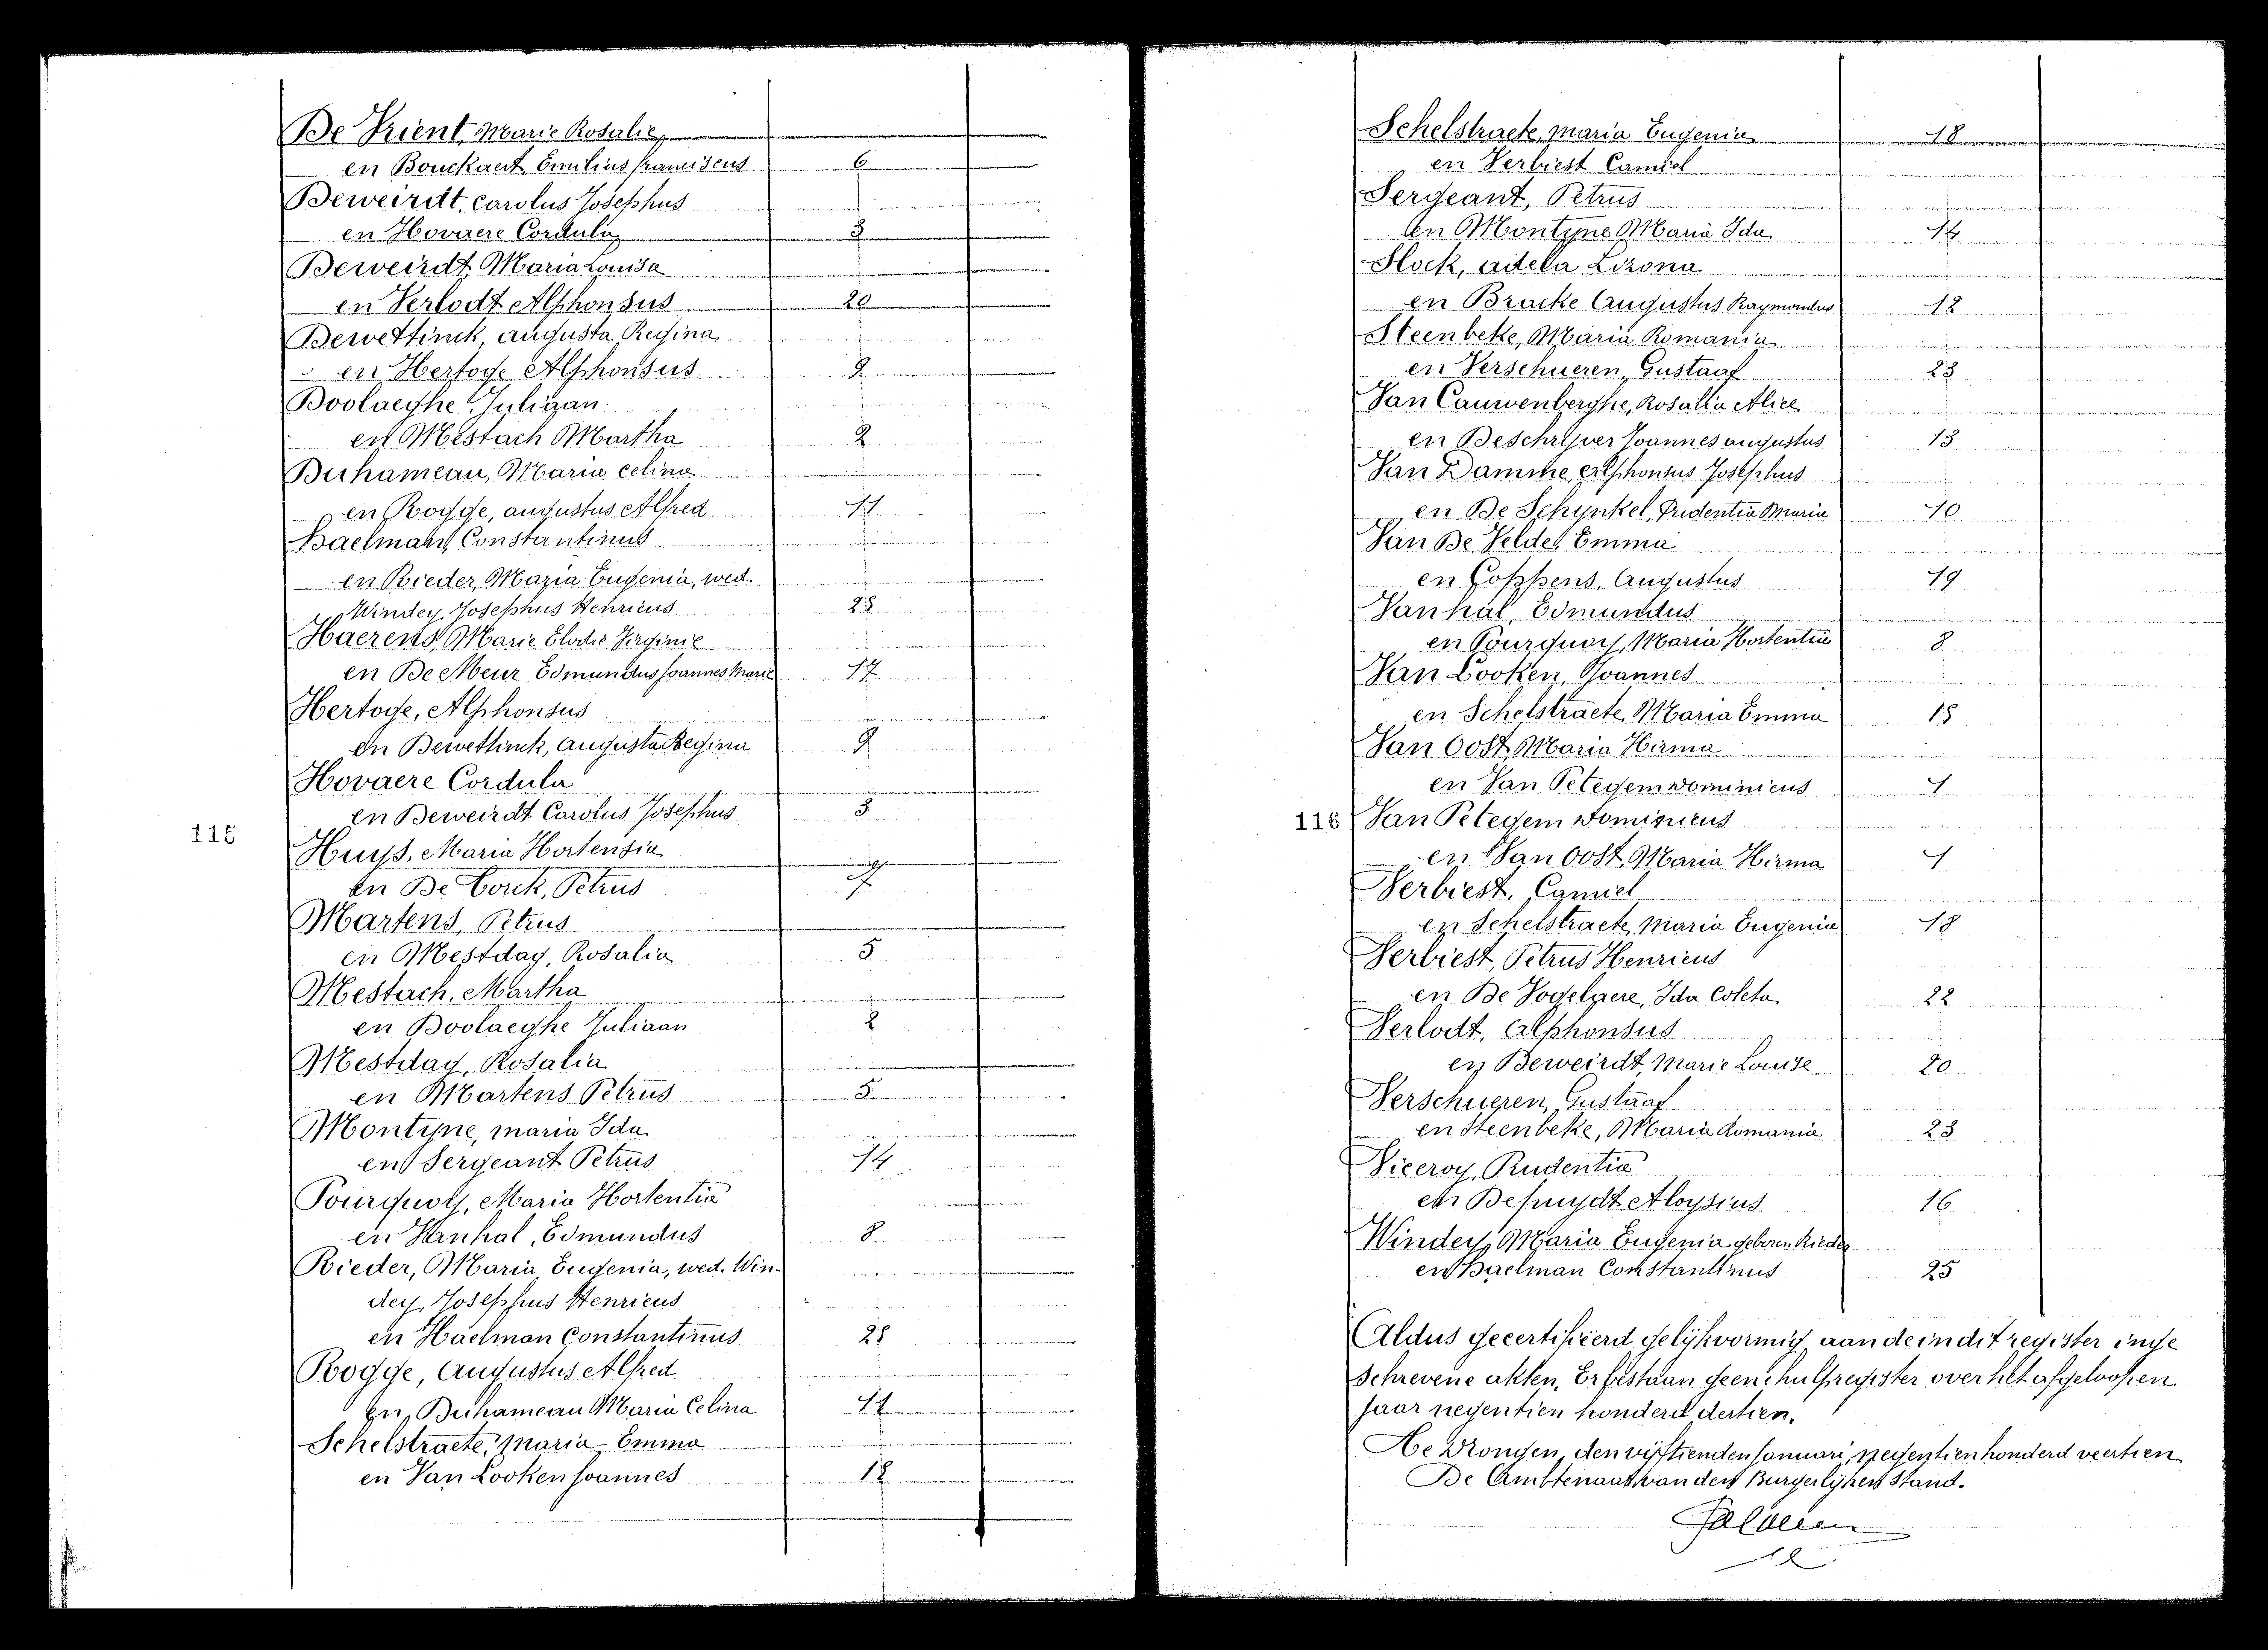 De Vrient, Marie Rosalie,
en Bouckaert, Emilius franciscus 6
Deweirdt, Carolus Josephus
en Hovaere Cordula 3
Deweirdt, Maria Louisa
en Verlodt Alphonsus 20
Dewettinck, augusta Regina,
en Hertoge Alphonsus 9
Doolaeghe, Juliaan
en Mestach Martha 2
Duhameau, Maria Celina
en Rogge, augustus Alfred 11
Haelman, Constantinus
en Rieder, Maria Eugenia, wed.
Windey, Josephus Henricus 25
Haerens, Marie Elodie Virginie
en De Meur Edmundus Joannes Marie 17
Hertoge, Alphonsus
en Dewettinck, Augusta Regina 9
Hovaere Cordula
en Deweirdt Carolus Josephus 3
115
Huys, Maria Hortensia
en De Corck, Petrus 7
Martens, Petrus
en Mestdag, Rosalia 5
Mestach, Martha
en Doolaeghe Juliaan 2
Mestdag, Rosalia
en Martens Petrus 5
Montyne, maria Ida
en Sergeant Petrus 14
Pourquoy, Maria Hortentia
en Vanhal, Edmundus 8
Rieder, Maria Eugenia, wed. Win-
dey, Josephus Henricus
en Haelman Constantinus 25
Rogge, Augustus Alfred
en Duhameau Maria Celina 11
Schelstraete, Maria-Emma
en Van Looken Joannes
Schelstraete, maria Eugenia 18
en Verbiest Camiel
Sergeant, Petrus
en Montyne Maria Ida 14
Slock, adela Lizona
en Bracke Augustus Raymondus 12
Steenbeke, Maria Romania
en Verschueren, Gustaaf 23
Van Cauwenberghe, Rosalia Alice
en Deschrijver Joannes augustus 13
Van Damme, Alphonsus Josephus
en De Schynkel, Prudentia Maria 10
Van De Velde, Emma
en Coppens, Augustus 19
Vanhal, Edmundus
en Pourquoy, Maria Hortentia 8
Van Looken, Joannes
en Schelstraete, Maria Emma 15
Van Oost, Maria Hirma
en Van Petegem Dominicus 1
116
Van Petegem Dominicus
en Van Oost, Maria Hirma 1
Verbiest, Camiel
en Schelstraete, Maria Eugenia 18
Verbiest, Petrus Henricus
en De Vogelaere, Ida Coleta 22
Verlodt, Alphonsus
en Deweirdt, Marie Louise 20
Verschueren, Gustaaf
en Steenbeke, Maria Romania 23
Viceroy, Prudentia
en Depuydt Aloysius 16
Windey, Maria Eugenia geboren Rieder
en Haelman Constantinus 25
Aldus gecertifieerd gelijkvormig aan de in dit register inge
schrevene akten. Er bestaan geene hulpregister over het afgeloopen
jaar negentien honderd dertien.
Te Drongen, den vijftienden Januari, negentienhonderd veertien
De Ambtenaar van den Burgerlijken Stand.